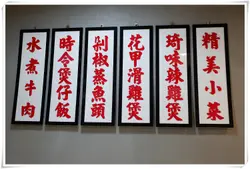 精美小菜
琦味辣雞煲
花甲滑雞煲
剁椒蒸魚頭
時令煲仔飯
水煮牛肉